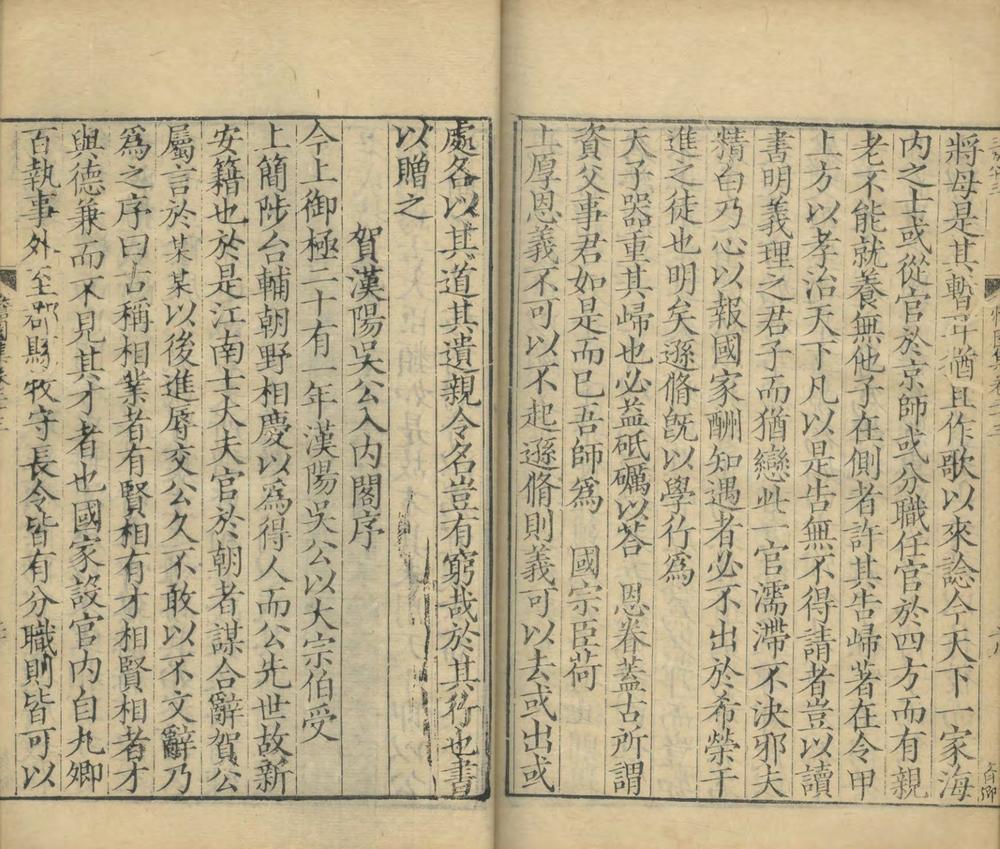 將母是其暫耳猶且作歌以來諗今天下一家海
内之士或從官於京師或分職任官於四方而有親
老不能就養無他子在側者許其告歸著在令甲
上方以孝治天下凡以是告無不得請者豈以讀
書明義理之君子而猶戀此一官濡滯不決邪夫
精白乃心以報國家酬知遇者必不出於希榮干
進之徒也明矣遜脩旣以學行爲
天子器重其歸也必益砥礪以荅 恩眷蓋古所謂
資父事君如是而已吾師爲 國宗臣荷
上厚恩義不可以不起遜脩則義可以去或出或
處各以其道其遺親令名豈有窮哉於其行也書
以贈之
賀漢陽吳公入内閣序
今上御極二十有一年漢陽吳公以大宗伯受
上簡陟台輔朝野相慶以爲得人而公先世故新
安籍也於是江南士大夫官於朝者謀合辭賀公
屬言於某某以後進辱交公久不敢以不文辭乃
爲之序曰古稱相業者有賢相有才相賢相者才
與德兼而不見其才者也國家設官内自九卿
百執事外至郡縣牧守長令皆有分職則皆可以